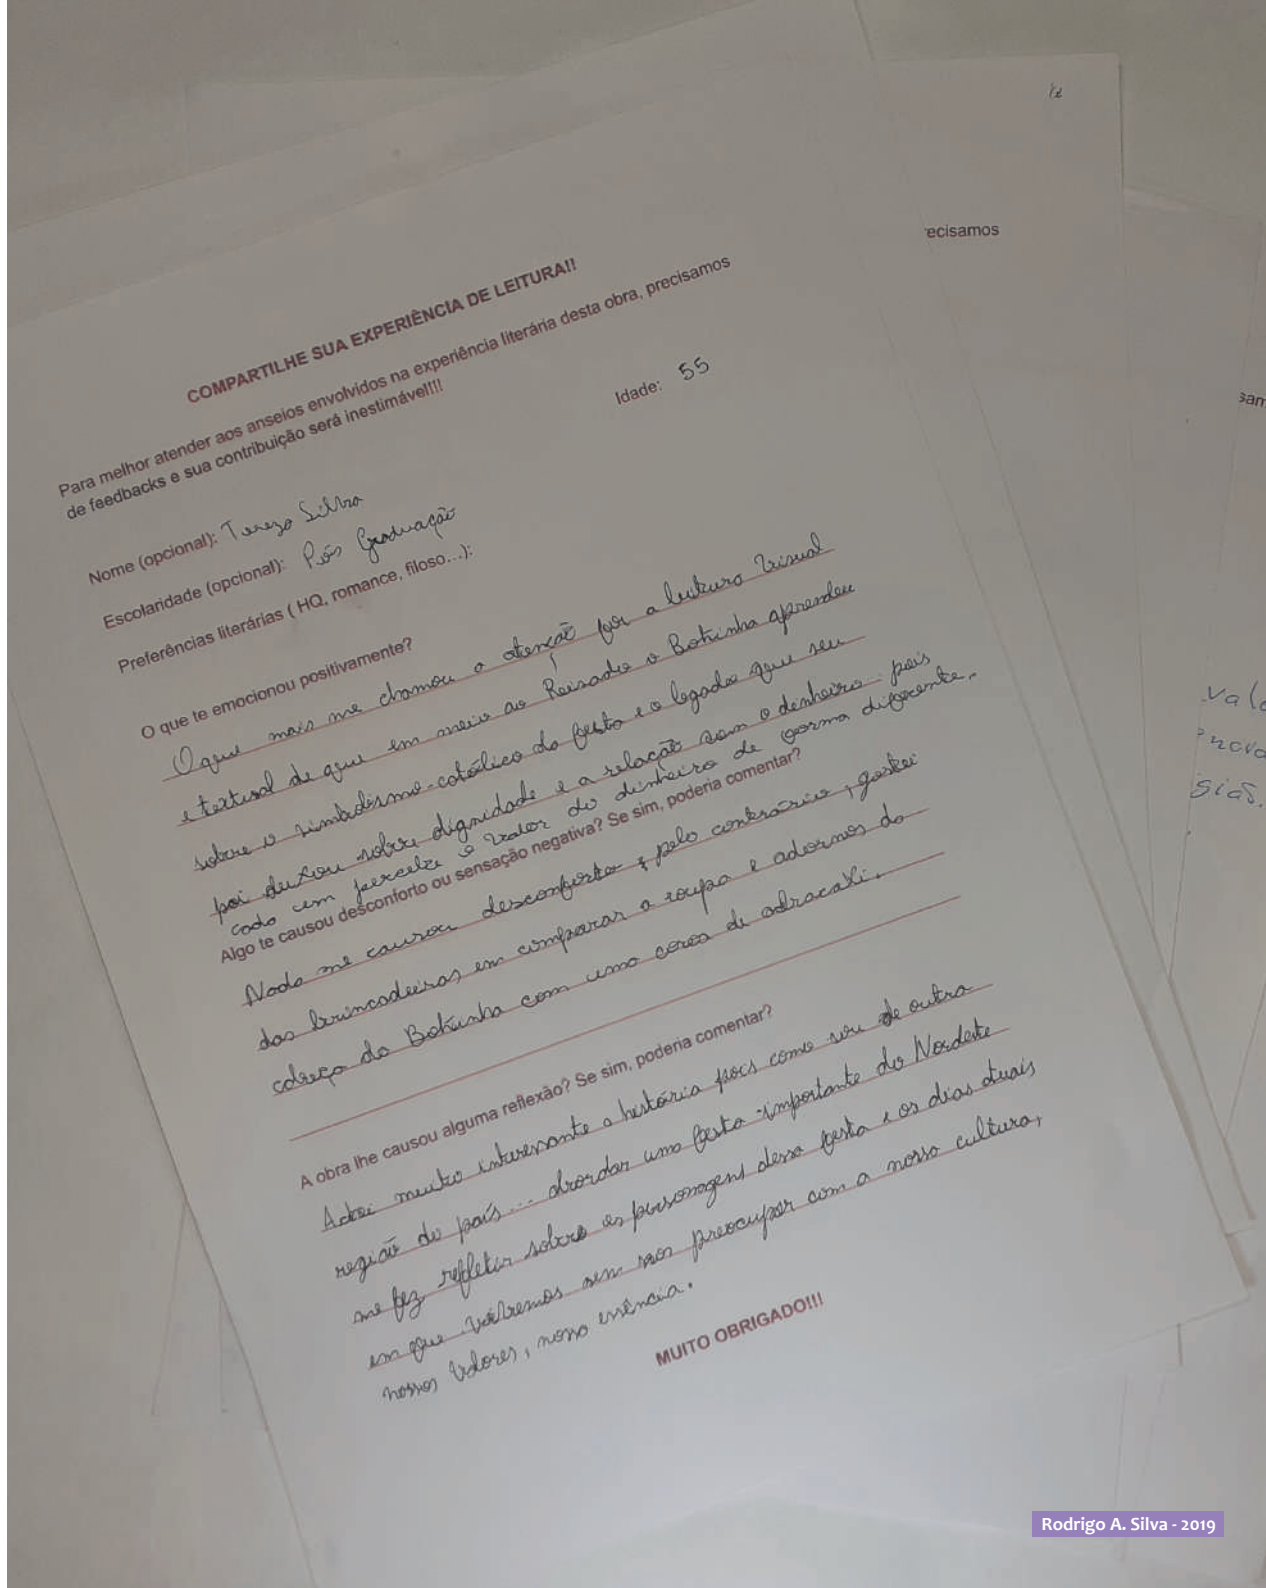 12
ecisamos
sam
COMPARTILHE SUA EXPERIÊNCIA DE LEITURA!!
Para melhor atender aos anseios envolvidos na experiência literária desta obra, precisamos
de feedbacks e sua contribuição será inestimável!!!!
Idade: 55
Nome (opcional): Tereza Silva
Escolaridade (opcional): Pós Graduação
Preferências literárias ( HQ, romance, filoso...):
O que te emocionou positivamente?
O que mais me chamou a atenção foi a leitura visual
e textual de que em meio ao Reisado o Botinha aprendeu
sobre o simbolismo-católico da festa e o legado que seu
pai deixou sobre dignidade e a relação com o denheiro pois
cada um percebe o valor do dinheiro de forma diferente.
Algo te causou desconforto ou sensação negativa? Se sim, poderia comentar?
Nada me causou desconforto, pelo contrário, gostei
das brincadeiras em comparar a roupa e adornos da
cabeça do Botinha com uma coroa de abracaxi.
A obra lhe causou alguma reflexão? Se sim, poderia comentar?
Achei muito interessante a história pois como sou de outra
região do país... abordar uma festa importante do Nordeste
me fez refletir sobre os personagens dessa festa e os dias atuais
em que vivemos sem nos preocupar com a nossa cultura,
nossos valores, nossa essência.
MUITO OBRIGADO!!!
Rodrigo A. Silva - 2019